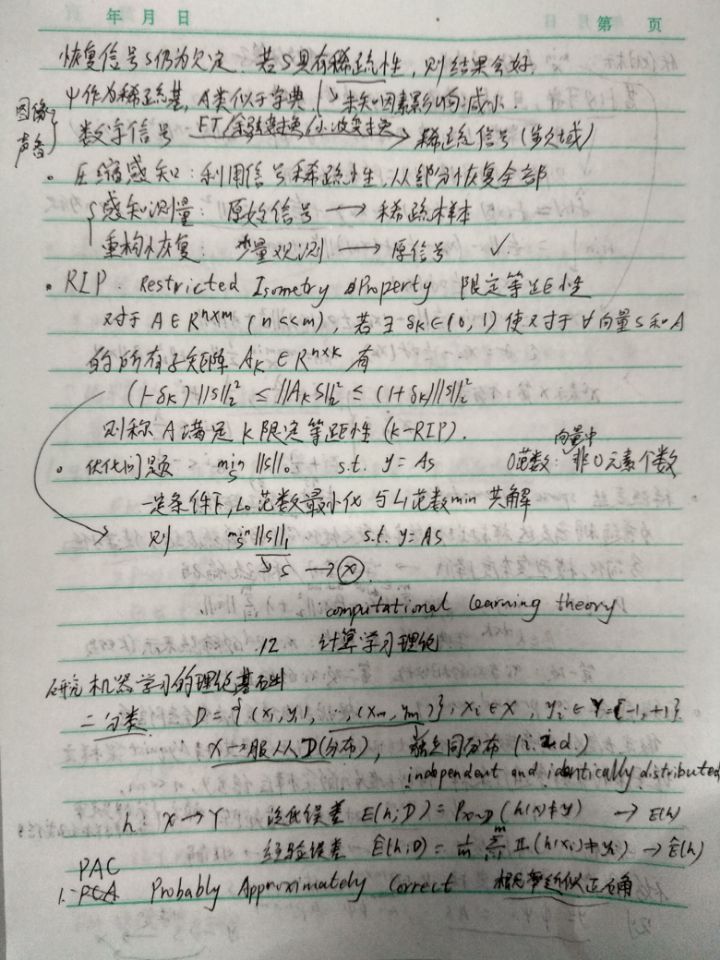 年 月 日 第 页
恢复信号S仍为欠定. 若S具有稀疏性, 则结果会好.
Ψ作为稀疏基, A类似于字典 } → 未知因素影响减小.
图像 声音 } 数字信号 FT/余弦变换/小波变换 → 稀疏信号(频域)
• 压缩感知: 利用信号稀疏性, 从部分恢复全部
{ 感知测量: 原始信号 → 稀疏样本
重构恢复: 少量观测 → 原信号 ✓.
• RIP. Restricted Isometry Property 限定等距性
对于 A∈R^{n×m} (n<<m), 若∃ δ_K∈(0,1) 使对于∀向量S和A
的所有子矩阵 A_K∈R^{n×K} 有
(1-δ_K)||S||₂² ≤ ||A_K S||₂² ≤ (1+δ_K)||S||₂²
则称A满足K限定等距性 (k-RIP).
• 优化问题 min_S ||S||₀ s.t. y=As 0范数: 向量中非0元素个数
一定条件下, L₀范数最小化与L₁范数min共解
则 min_S ||S||₁ s.t. y=AS
↳ S → ⓧ.
computational learning theory
12 计算学习理论
研究机器学习的理论基础
二分类: D={(x₁,y₁),…,(x_m,y_m)}; x_i∈X, y_i∈Y={-1,+1}
X→服从D(分布), 独立同分布(i.i.d.)
independent and identically distributed
h: X→Y 泛化误差 E(h;D)=P_{x∼D}(h(x)≠y) → E(h)
经验误差 Ê(h;D)=1/m Σ_{i=1}^m Ⅱ(h(x_i)≠y_i) → Ê(h)
PAC
1. Probably Approximately Correct 概率近似正确